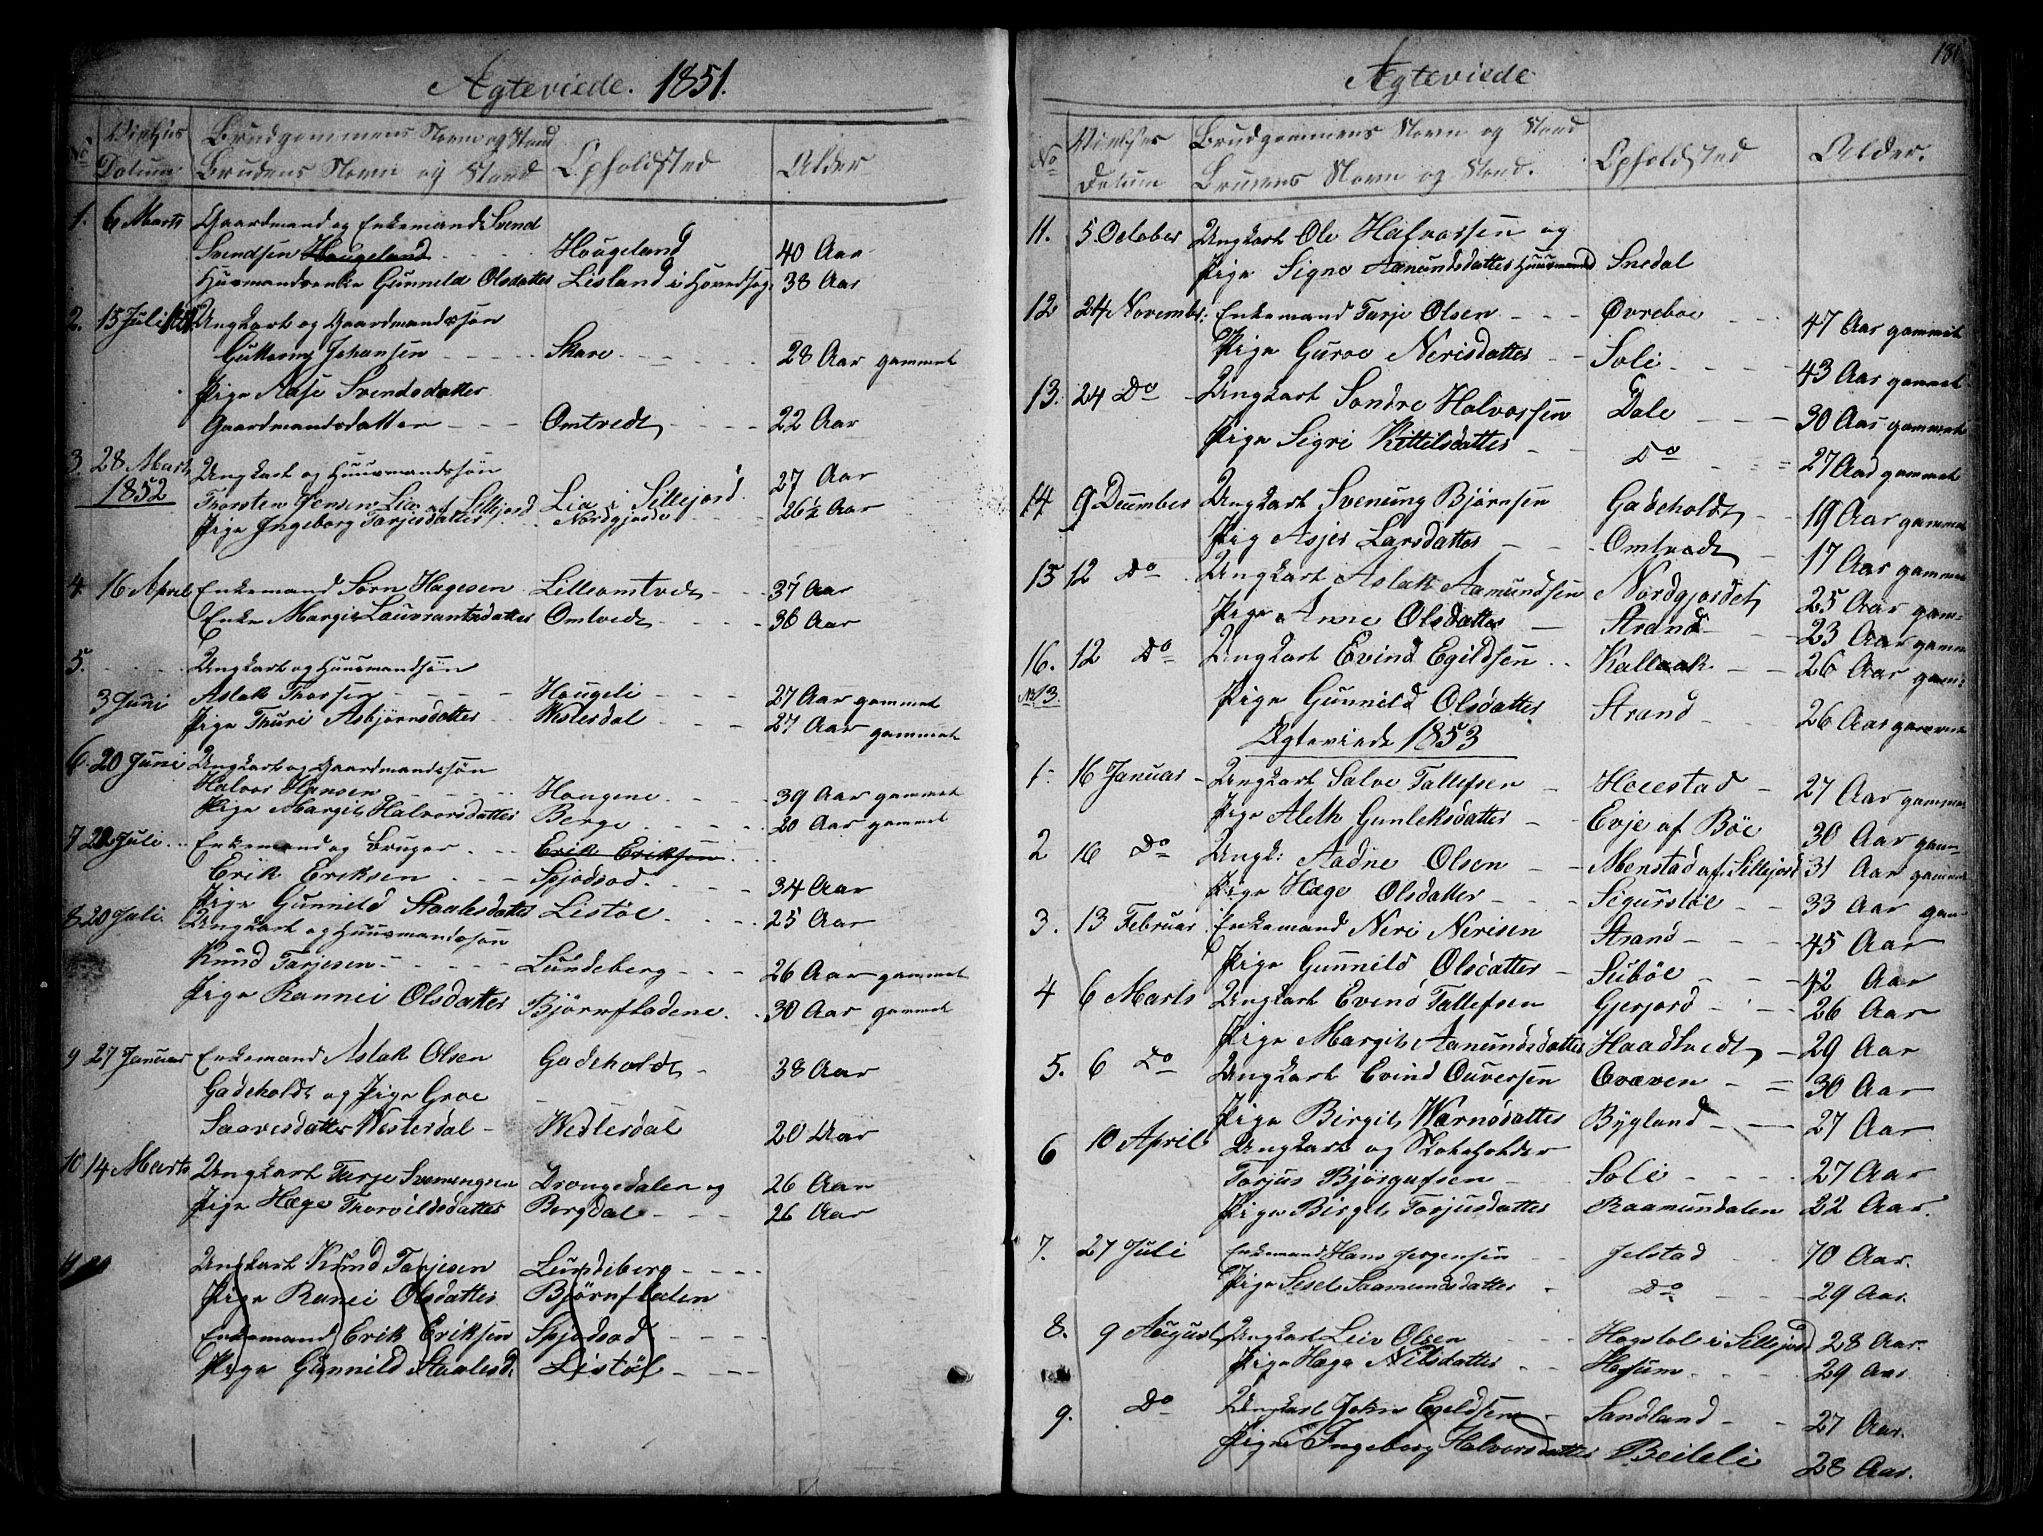 Ægteviede. 1851.
No Vielses Datum
Brudgommens Navn og Stand
Brudens Navn og Stand
Opholdsted
Alder
1. 6 Marts Gaardmand og Enkemand Svend
Svendsen Haugeland - - - Hougeland 40 Aar
Huusmandsenke Gunnild Olsdatter Lisland i Hovedsog. 38 Aar
2. 15 Juli Ungkarl og Gaardmandssøn
Guttorm Johansen - - - - Skare - - - - 28 Aar gammel
Pige Aase Svendsdatter
Gaardmandsdatter - - - Omtvedt - - - - 22 Aar
3 28 Marts Ungkarl og Huusmandssøn
1852 Thorsten Jensen Lie af Sillejord Lia i Sillejord. 27 Aar
Pige Ingeborg Tarjesdatter Nordgjorde - - - 26½ Aar
4. 16 April Enkemand Sørn Hagesen Lilleomtvedt - - - 37 Aar
Enke Margit Lauvrantsdatter Omtvedt - - - - 36 Aar
5. - - - - Ungkarl og Huusmandsøn
3 Juni Aslak Thorsen - - - - - Hougeli - - - - 27 Aar gammel
Pige Thuri Asbjørnsdatter - - Westerdal - - - - 27 Aar gammel
6. 20 Juni Ungkarl og Gaardmandssøn
Halvor Hansen - - - - - Hougene - - - - 39 Aar gammel
Pige Margit Halvorsdatter Berge - - - - - 20 Aar gammel
7 20 Juli - - Enkemand og Bruger - - Erik Eriksen - - -
Erik Eriksen - - - Spjodsod - - - - 34 Aar
Pige Gunnild Staalesdatter Listøe - - - - 25 Aar
8. 20 Juli. Ungkarl og Huusmandssøn
Knud Tarjesen - - - - - Lundeberg - - - 26 Aar gammel
Pige Rannei Olsdatter Bjørnfladene - - 30 Aar gammel
9 27 Januar Enkemand Aslak Olsen Gadeholdt - 38 Aar
Gadeholdt og Pige Groe
Saavesdatter Westerdal - Westerdal 20 Aar
10 14 Marts Ungkarl Tarje Svenungsen Drongedalen og 26 Aar
Pige Hæge Thorvildsdatter Bergdal - - - 26 Aar
Ungkarl Knud Tarjesen Lundeberg - - - -
Pige Ranei Olsdatter Bjørnfladen
Enkemand Erik Eriksen Spjodsod - - - -
Pige Gunnild Staalesd. Listøl - - - -
181
Ægteviede
No Vielses Datum
Brudgommens Navn og Stand
Brudens Navn og Stand.
Opholdsted
Alder.
11. 5 October Ungkarl Ole Halvorsen og
Pige Signe Aamundsdatter Huusmand Snedal
12 24 Novembr: Enkemand Tarje Olsen - - - Øvreboe - - 47 Aar gammel
Pige Guroe Nerisdatter - - Soli - - - - 43 Aar gammel
13. 24 Do Ungkarl Sondre Halvorsen Dale - - - 30 Aar gammel
Pige Sigri Kittilsdatter - - Do - - = 27 Aar gammel
14 9 December Ungkarl Svenung Bjørnsen Gadeholdt - - 19 Aar gammel
Pig Asjer Larsdatter - - - Omtvedt - 17 Aar gammel
15 12 Do Ungkarl Aslak Aamundsen Nordgjordet 25 Aar gam-
Pige Anne Olsdatter - Strand - - 23 Aar gamm
16. 12 Do Ungkarl Evind Egildsen - - Kallaak - - 26 Aar gam:
No 13. Pige Gunnild Olsdatter Strand - - 26 Aar gammel
Ægteviede 1853
1. 16 Januar - Ungkarl Salve Tallefsen - Hoiestad - 27 Aar gammel
Pige Aleth Gunleksdatter - Evje af Böe 30 Aar gam-
2 16 Do Ungk: Aadne Olsen - - Menstad af Sillejord 31 Aar gammel
Pige Hæge Olsdatter - - - Sigurstöe - - 33 Aar gam-
3. 13 Februar Enkemand Neri Nerisen Strand - - - 45 Aar
Pige Gunnild Olsdatter - Suböe - - - 42 Aar
4 6 Marts Ungkarl Evind Tallefsen Gjerjord - - - 26 Aar
Pige Margit Aamundsdatter Haadtvedt - 29 Aar
5. 6 Do Ungkarl Evind Ouversen Qvæven - = 30 Aar
Pige Birgit Warnsdatter Bygland - - - 27 Aar
6 10 April Ungkarl og Skoleholder
Torjus Bjørgufsen - - Soli - - - - 27 Aar
Pige Birgit Torjusdatter Raamundalen 22 Aar.
7. 27 Juli Enkemand Hans Jorgensen - Jelstad - - 70 Aar.
Pige Sesel Saamundsdatter - Do - - - 29 Aar.
8. 9 August Ungkarl Leiv Olsen - - - Hagetol i Sillejord 28 Aar.
Pige Hæge Nilsdatter - - Hesum - - - 29 Aar
9. Do Ungkarl John Egildsen - Sandland - - 27 Aar.
Pige Ingeborg Halvorsdatter Beiteli 28 Aar.